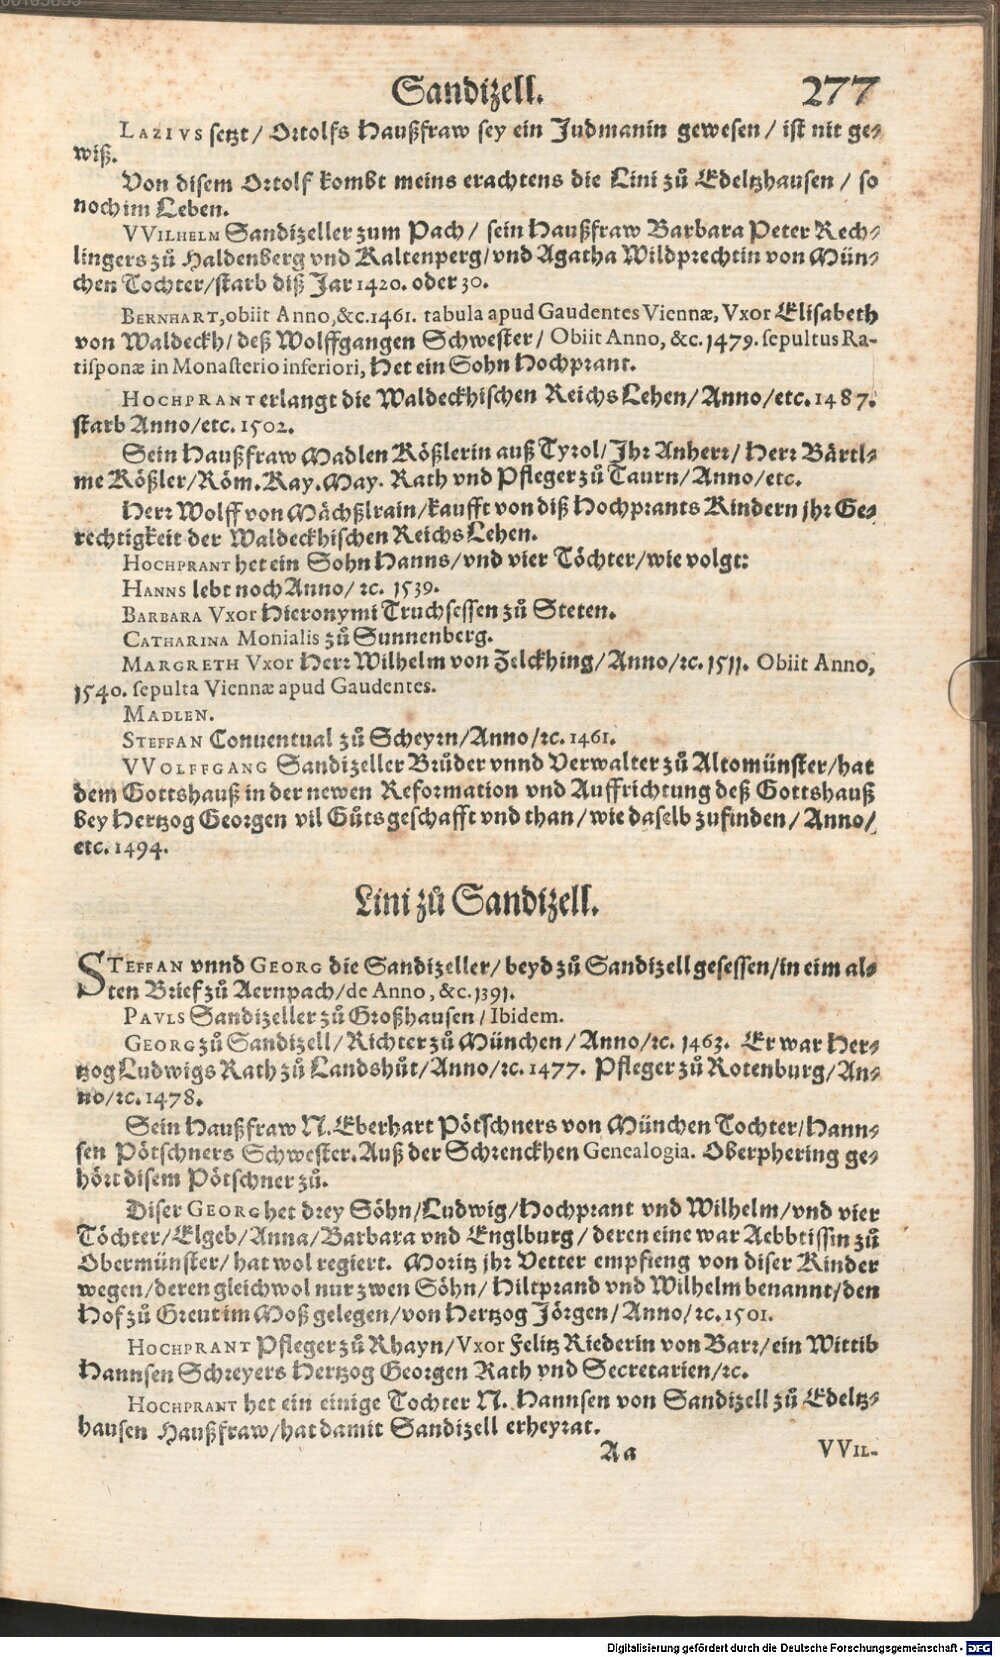 Sandizell. 277
LAZIVS setzt / Ortolfs Haußfraw sey ein Judmanin gewesen / ist nit ge⸗
wiß.
Von disem Ortolf kombt meins erachtens die Lini zů Edeltzhausen / so
noch im Leben.
VVILHELM Sandizeller zum Pach / sein Haußfraw Barbara Peter Rech⸗
lingers zů Haldenberg vnd Kaltenperg / vnd Agatha Wildprechtin von Mün⸗
chen Tochter / starb diß Jar 1420. oder 30.
BERNHART, obiit Anno, &c. 1461. tabula apud Gaudentes Viennæ, Vxor Elisabeth
von Waldeckh / deß Wolffgangen Schwester / Obiit Anno, &c. 1479. sepultus Ra-
tisponæ in Monasterio inferiori, Het ein Sohn Hochprant.
HOCHPRANT erlangt die Waldeckhischen Reichs Lehen / Anno / etc. 1487.
starb Anno / etc. 1502.
Sein Haußfraw Madlen Rößlerin auß Tyrol / Jhr Anherr / Herr Bärtl⸗
me Rößler / Röm. Kay. May. Rath vnd Pfleger zů Taurn / Anno / etc.
Herr Wolff von Mächßlrain / kaufft von diß Hochprants Kindern jhr Ge⸗
rechtigkeit der Waldeckhischen Reichs Lehen.
HOCHPRANT het ein Sohn Hanns / vnd vier Töchter / wie volgt:
HANNS lebt noch Anno / ꝛc. 1539.
BARBARA Vxor Hieronymi Truchsessen zů Steten.
CATHARINA Monialis zů Sunnenberg.
MARGRETH Vxor Herr Wilhelm von Zelckhing / Anno / ꝛc. 1511. Obiit Anno,
1540. sepulta Viennæ apud Gaudentes.
MADLEN.
STEFFAN Conuentual zů Scheyrn / Anno / ꝛc. 1461.
VVOLFFGANG Sandizeller Brůder vnnd Verwalter zů Altomünster / hat
dem Gottshauß in der newen Reformation vnd Auffrichtung deß Gottshauß
bey Hertzog Georgen vil Gůts geschafft vnd than / wie daselb zufinden / Anno /
etc. 1494.
Lini zů Sandizell.
STEFFAN vnnd GEORG die Sandizeller / beyd zů Sandizell gesessen / in eim al⸗
ten Brief zů Aernpach / de Anno, &c. 1391.
PAVLS Sandizeller zů Großhausen / Ibidem.
GEORG zů Sandizell / Richter zů München / Anno / ꝛc. 1463. Er war Her⸗
tzog Ludwigs Rath zů Landshůt / Anno / ꝛc. 1477. Pfleger zů Rotenburg / An⸗
no / ꝛc. 1478.
Sein Haußfraw N. Eberhart Pötschners von München Tochter / Hann⸗
sen Pötschners Schwester. Auß der Schrenckhen Genealogia. Oberphering ge⸗
hört disem Pötschner zů.
Diser GEORG het drey Söhn / Ludwig / Hochprant vnd Wilhelm / vnd vier
Töchter / Elgeb / Anna / Barbara vnd Englburg / deren eine war Aebbtissin zů
Obermünster / hat wol regiert. Moritz jhr Vetter empfieng von diser Kinder
wegen / deren gleichwol nur zwen Söhn / Hiltprand vnd Wilhelm benannt / den
Hof zů Greut im Moß gelegen / von Hertzog Jörgen / Anno / ꝛc. 1501.
HOCHPRANT Pfleger zů Rhayn / Vxor Felitz Riederin von Barr / ein Wittib
Hannsen Schreyers Hertzog Georgen Rath vnd Secretarien / ꝛc.
HOCHPRANT het ein einige Tochter N. Hannsen von Sandizell zů Edeltz⸗
hausen Haußfraw / hat damit Sandizell erheyrat.
Aa VVIL-
Digitalisierung gefördert durch die Deutsche Forschungsgemeinschaft - DFG